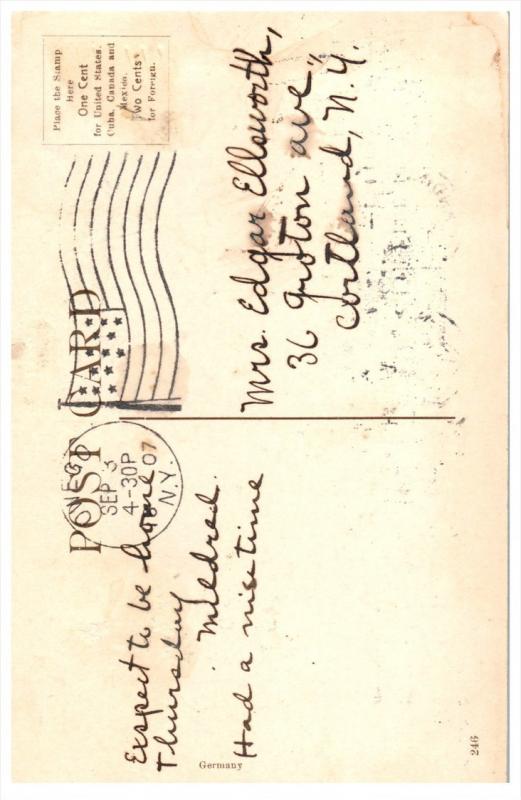 POST CARD
Place the Stamp
Here
One Cent
for United States.
Cuba, Canada and
Mexico.
Two Cents
for Foreign.
OWEGO
SEP 3
4-30P
07
N.Y.
Exspect to be home
Thursday
Mildred.
Had a nice time
Mrs. Edgar Ellsworth,
36 Groton ave.,
Cortland, N.Y.
Germany
246